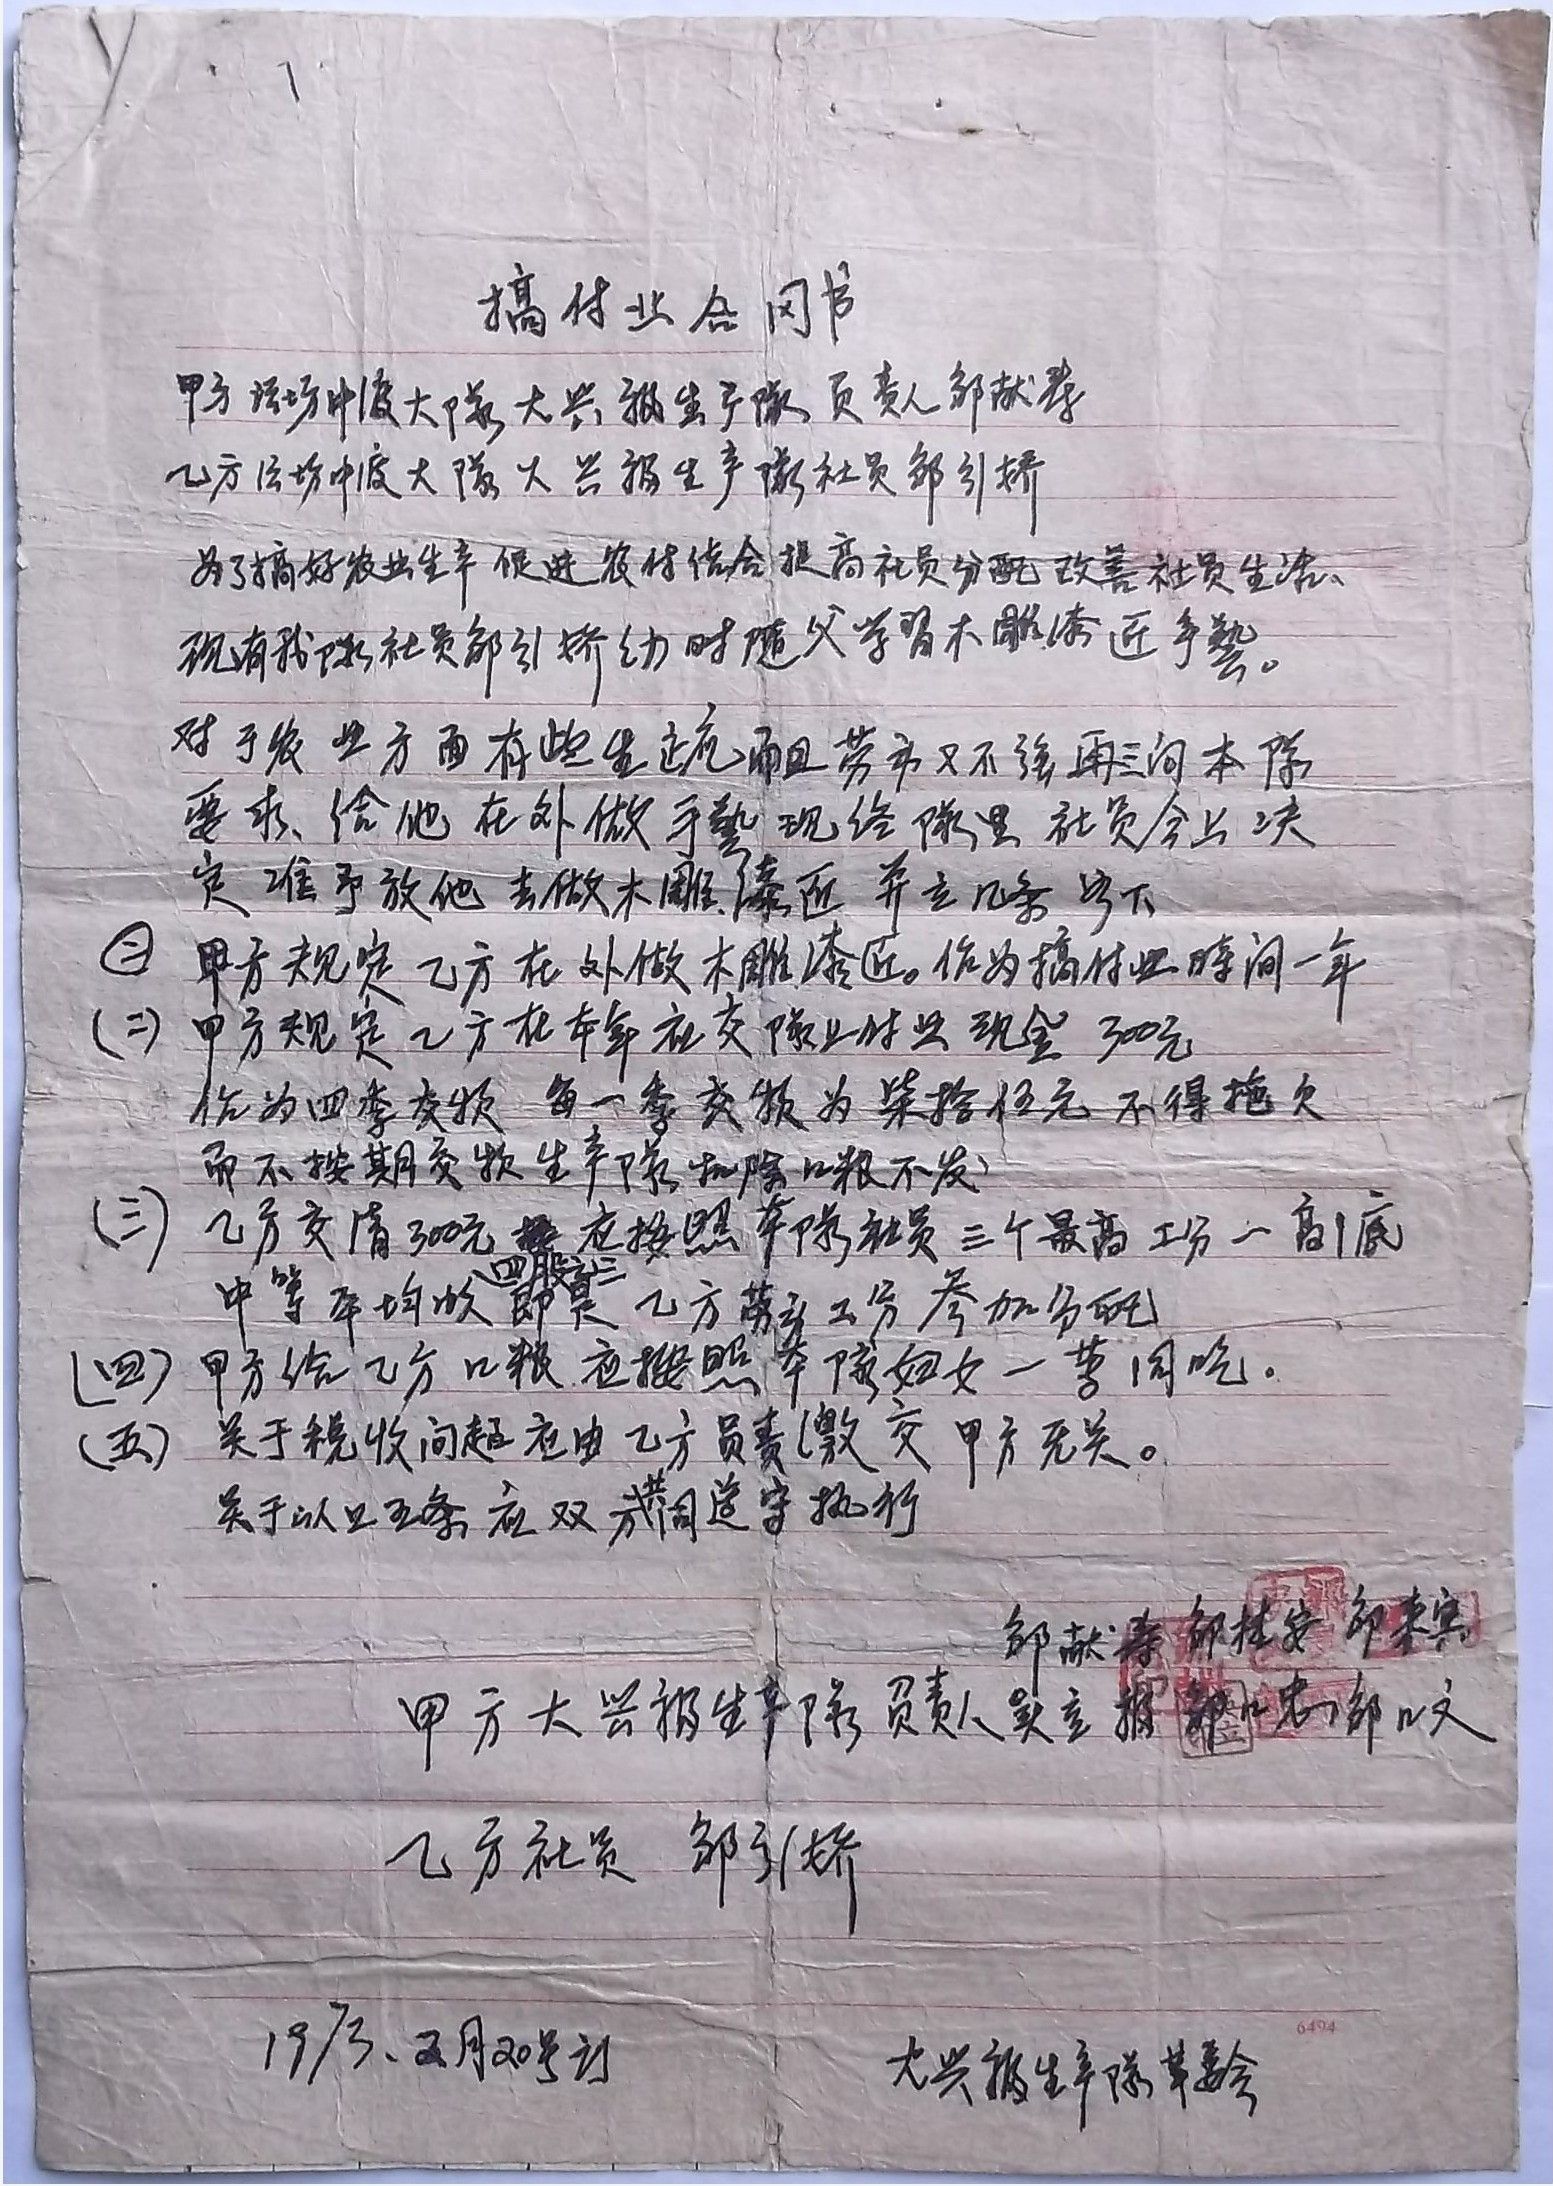 搞付业合同书
甲方法坊中渡大队大兴报生产队负责人邹献荐
乙方法坊中渡大队大兴报生产队社员邹引桥
为了搞好农业生产促进农付结合提高社员分配改善社员生活、
现有我队社员邹引桥幼时随父学习木雕漆匠手艺。
对于农业方面有些生疏而且劳力又不强再三向本队
要求、给他在外做手艺现经队里社员会上决
定准予放他去做木雕、漆匠并立几条如下
(一) 甲方规定乙方在外做木雕漆匠。作为搞付业时间一年
(二) 甲方规定乙方在本年应交队上付业现金300元
作为四季交额每一季交额为柒拾伍元不得拖欠
而不按期交额生产队扣除口粮不发
(三) 乙方交清300元 应按照本队社员三个最高工分一高1底
四股之三
中等平均收即是乙方劳动工分参加分配
(四) 甲方给乙方口粮应按照本队妇女一等同吃。
(五) 关于税收问题应由乙方负责缴交甲方无关。
关于以上五条应双方共同遵守执行
邹献荐 邹桂安 邹来宾
甲方大兴报生产队负责人吴立报 邹口忠 邹口文
乙方社员 邹引桥
1973、2月20号订
大兴报生产队革委会
6494